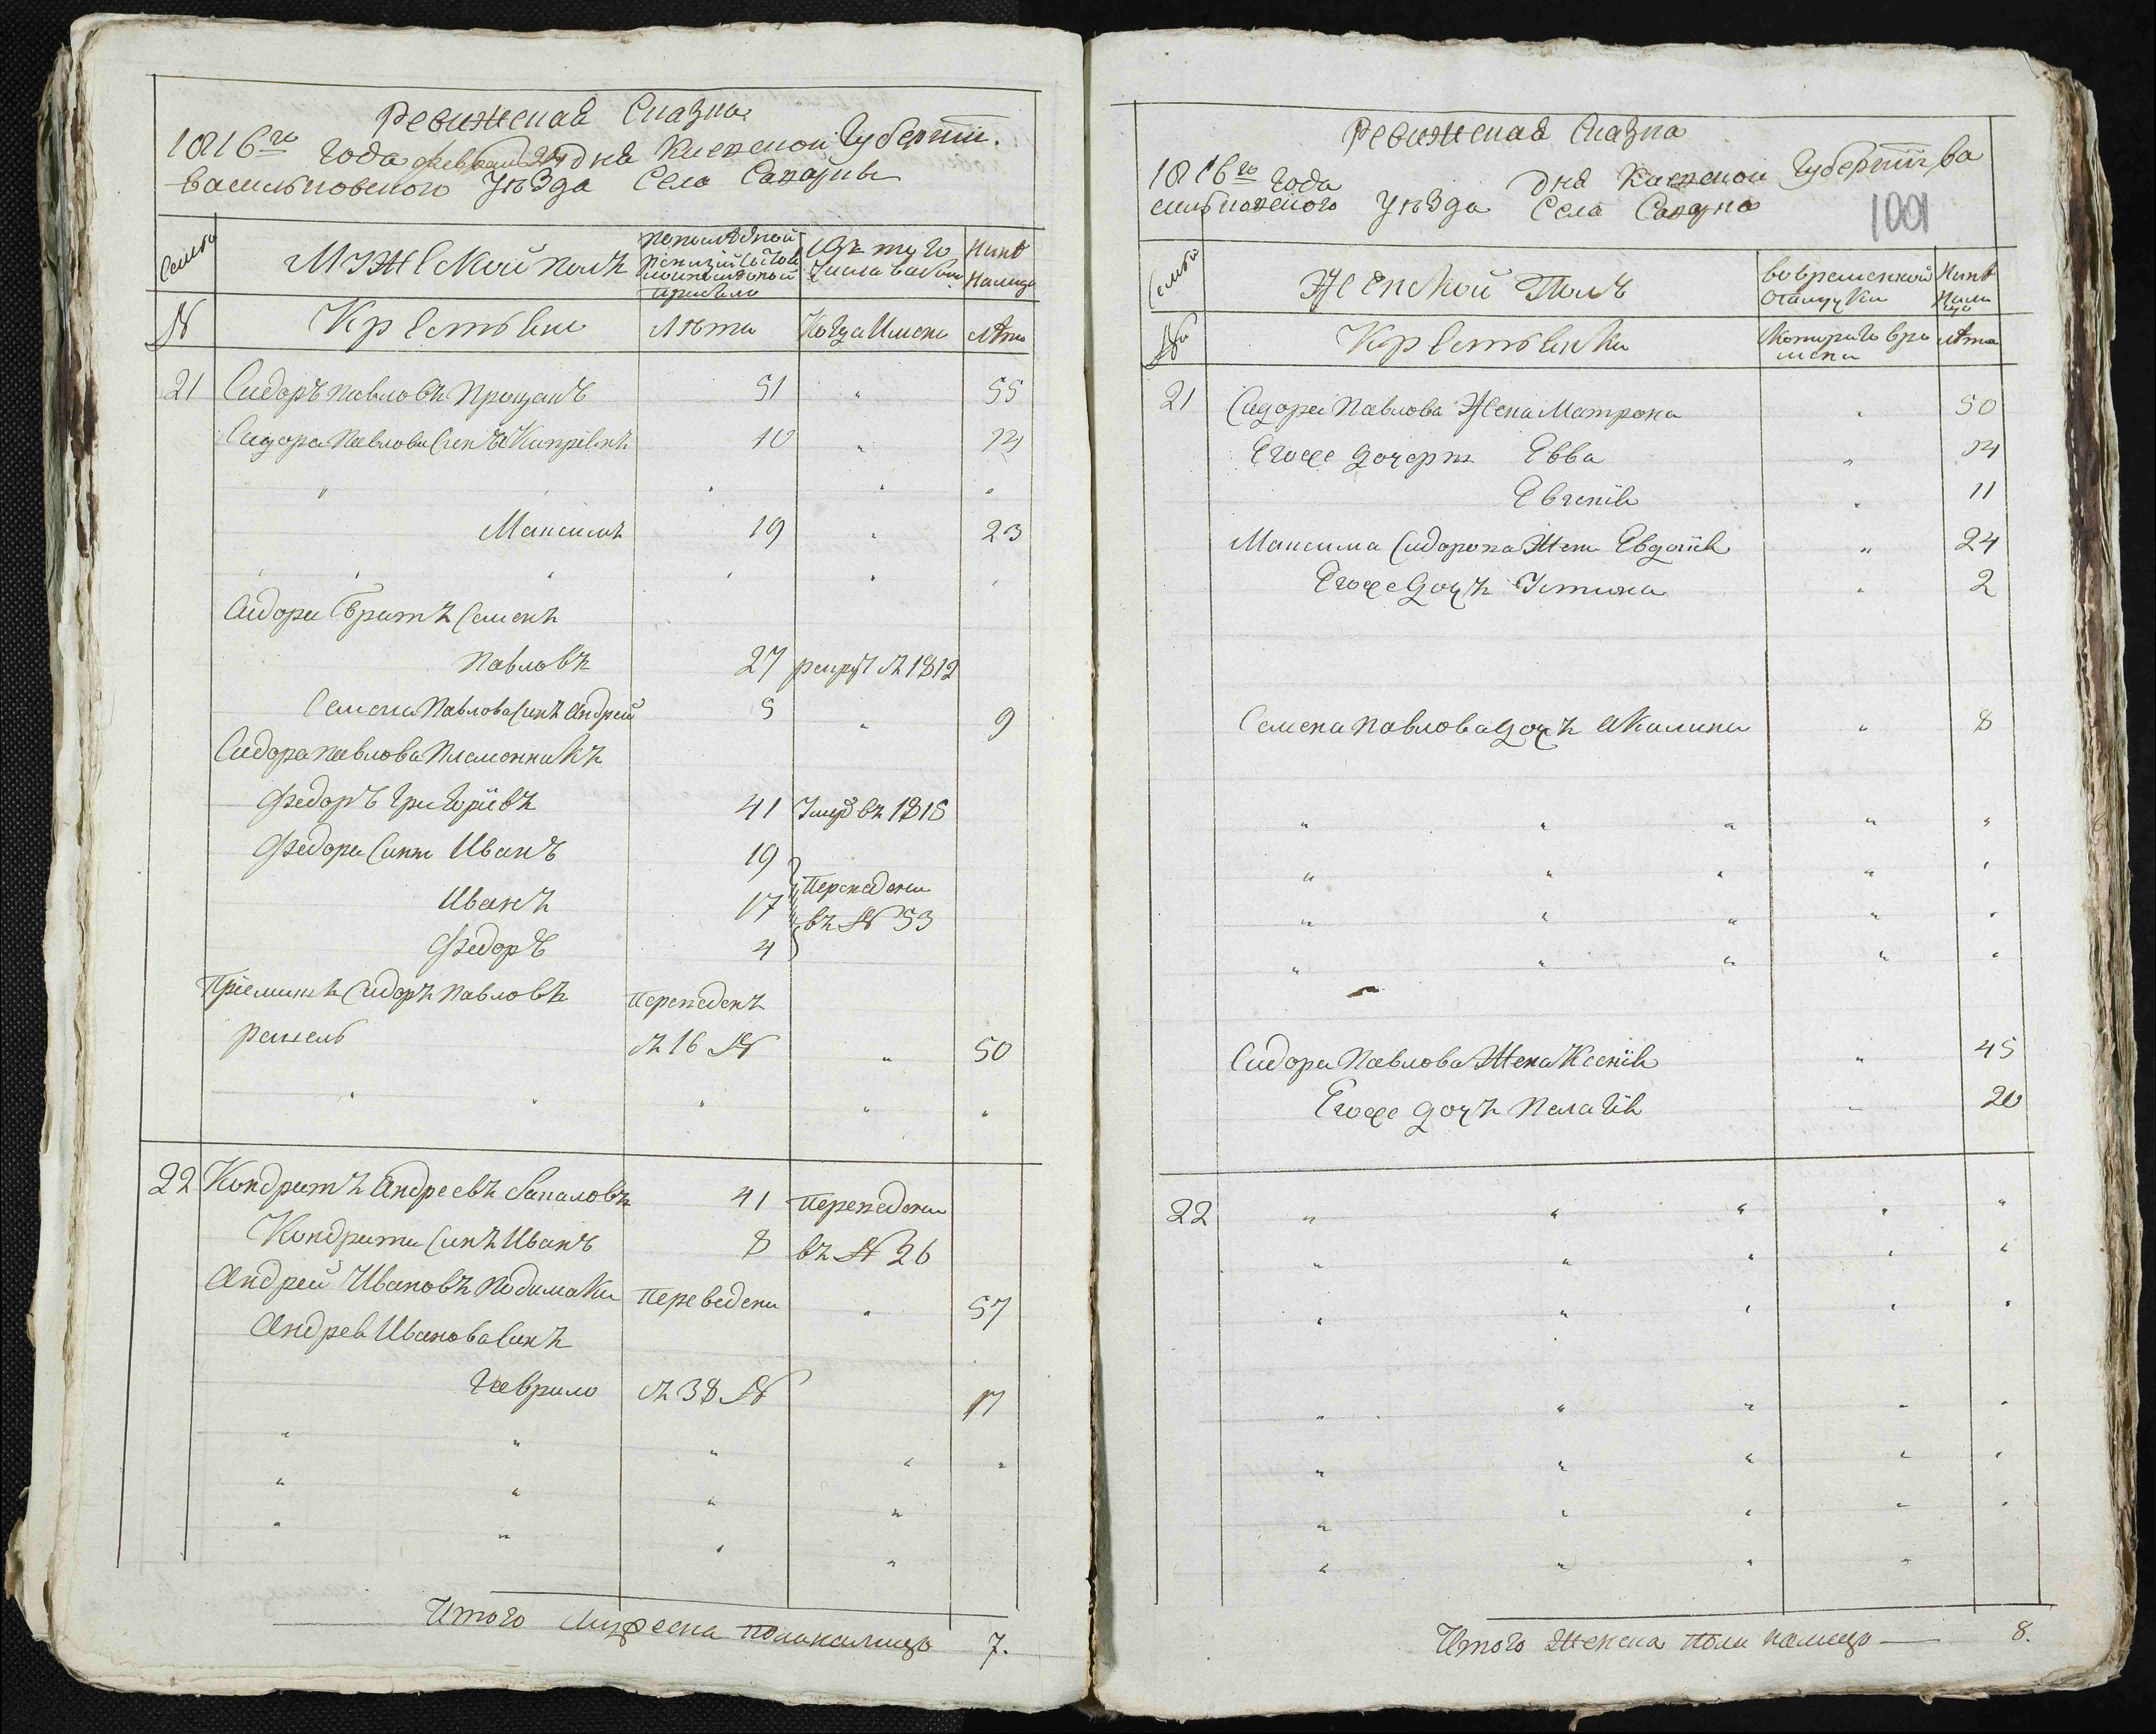 Ревижская Сказка
1816го Года февраля дня Киевской Губернии.
Васильковского Уезда Села
Семьи
Мужеской полъ
По последной ревизіи состояло и после оной прибыло
Изъ того Числа выбыло
Ныне на лицо
№
Крестьяне
Лета
Когда Имено
Лета
21 Сидоръ Павловъ 51 " 55
Сидора Павлова Синъ Кипріянъ 10 " 14
Максимъ 19 " 23
Сидора Братъ Семенъ
Павловъ 27 рекрут 1812
Семена Павлова Синъ Андрей 5 " 9
Сидора Павлова Племенникъ
Федоръ Григоріевъ 41 Умер въ 1815
Федора Сини Иванъ 19
Иванъ 17 Переведени
въ № 53
Федоръ 4
Пріемишъ Сидоръ Павловъ Переведенъ
съ 16 № " 50
22 Кондратъ Андреевъ 41 Переведени
Кондрата Синъ Иванъ 8 въ № 26
Андрей Ивановъ Переведени " 57
Андрея Иванова Синъ
Гаврило съ 38 № 17
Итого Мужеска Пола налицо 7.
Ревижская Сказка
1816го Года дня Киевской Губернии Ва
сильковского Уезда Села
1001
Семьи
Женской Полъ
Во временной отлучки
Ныне на лицо
№
Крестьянки
Которого вре
мени
Лета
21 Сидора Павлова Жена Матрона " 50
Егоже дочери Евва " 14
Евгенія " 11
Максима Сидорова Жена Евдокія " 24
Егоже Дочь Устина " 2
Семена Павлова дочь Акилина " 8
Сидора Павлова Жена Ксенія " 45
Егоже дочь Палагія " 20
22
Итого Женска Пола налицо — 8.